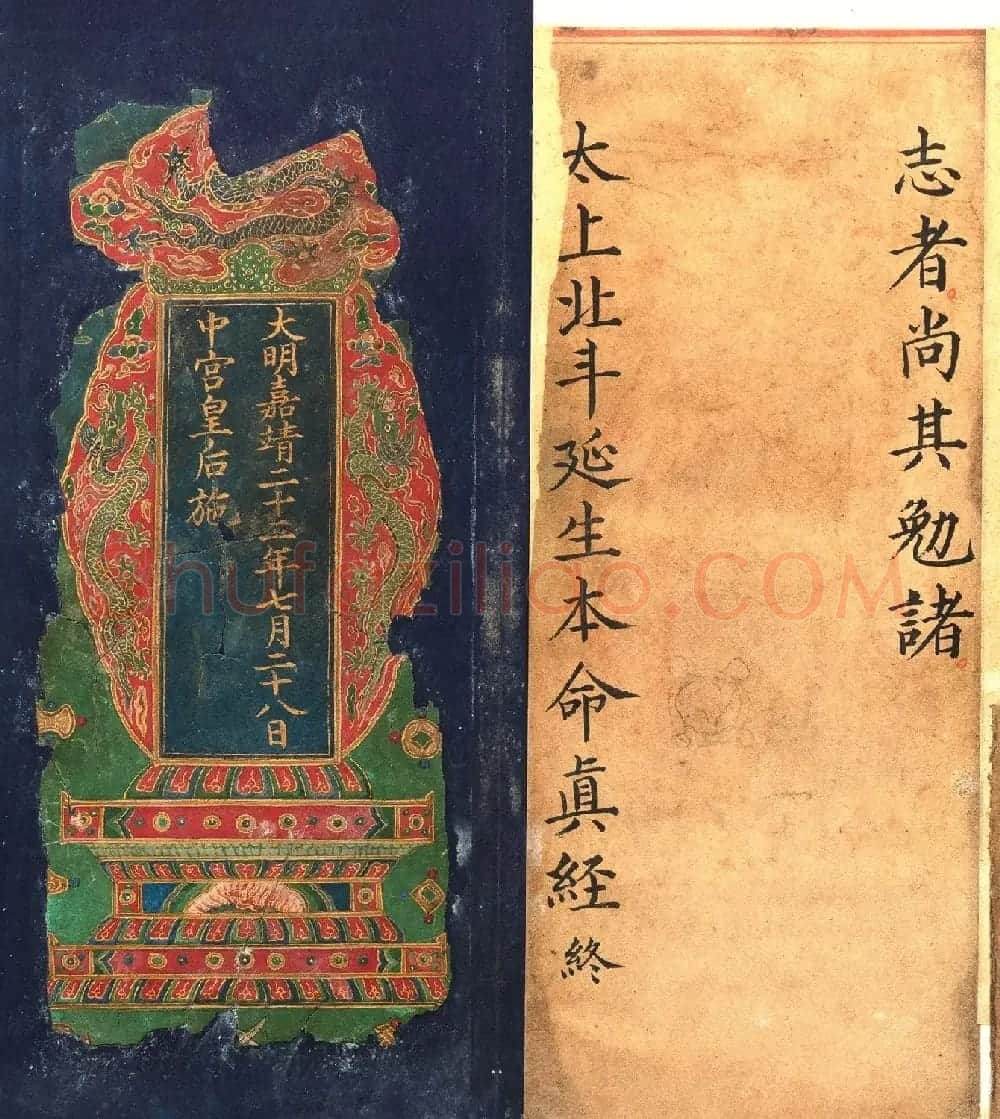 志者尚其勉諸
太上北斗延生本命眞経終
大明嘉靖二十三年七月二十八日
中宮皇后施
shufaziliao.COM